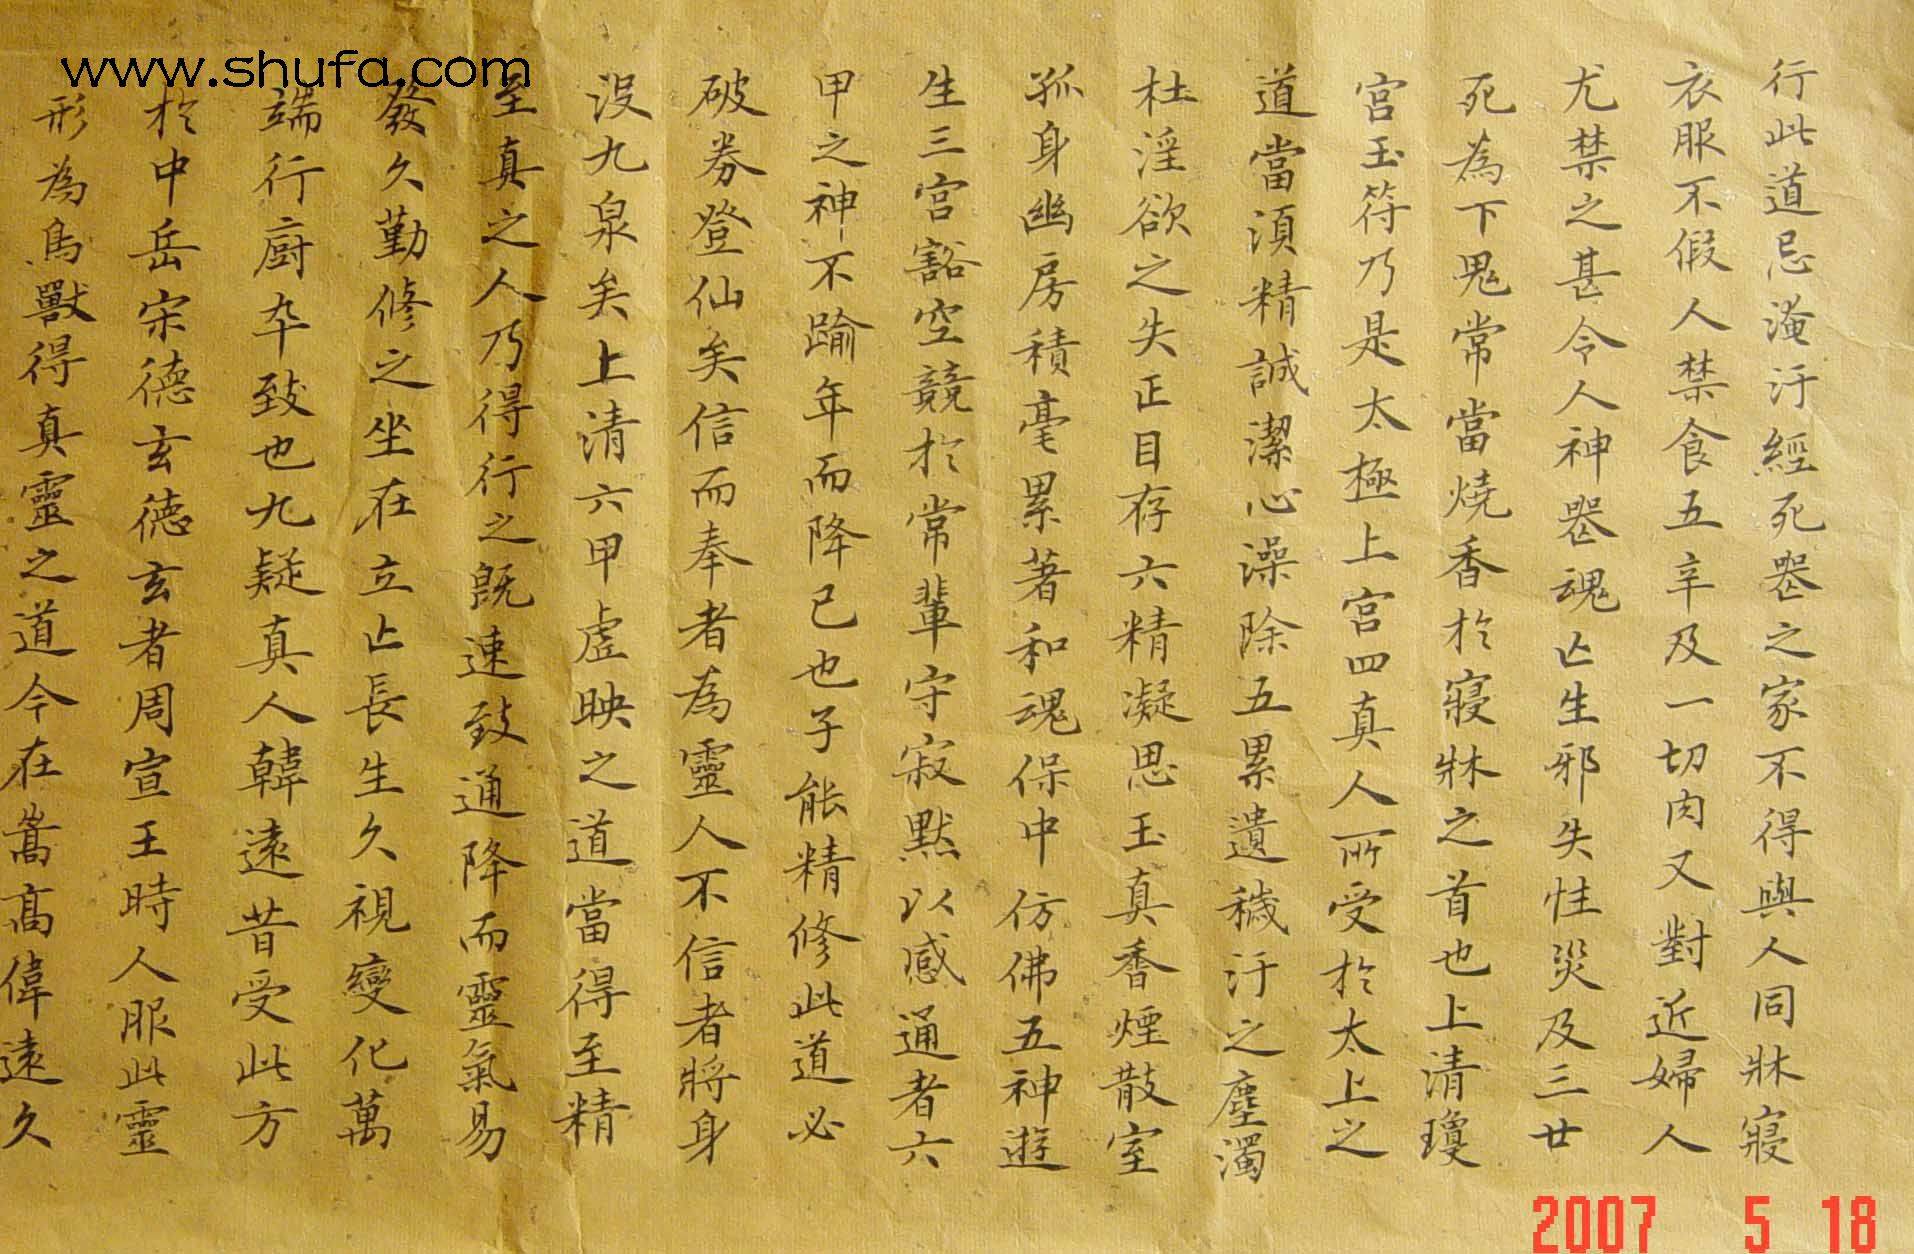 www.shufa.com
行此道忌淹汙經死喪之家不得與人同牀寢
衣服不假人禁食五辛及一切肉又對近婦人
尤禁之甚令人神喪魂亡生邪失性災及三世
死為下鬼常當燒香於寢牀之首也上清瓊
宮玉符乃是太極上宮四真人所受於太上之
道當須精誠潔心澡除五累遺穢汙之塵濁
杜淫欲之失正目存六精凝思玉真香煙散室
孤身幽房積毫累著和魂保中仿佛五神遊
生三宮豁空競於常輩守寂默以感通者六
甲之神不踰年而降己也子能精修此道必
破券登仙矣信而奉者為靈人不信者將身
沒九泉矣上清六甲虛映之道當得至精
至真之人乃得行之既速致通降而靈氣易
發久勤修之坐在立亡長生久視變化萬
端行廚卒致也九疑真人韓遠昔受此方
於中岳宋德玄德玄者周宣王時人服此靈
形為鳥獸得真靈之道今在嵩高偉遠久
2007 5 18